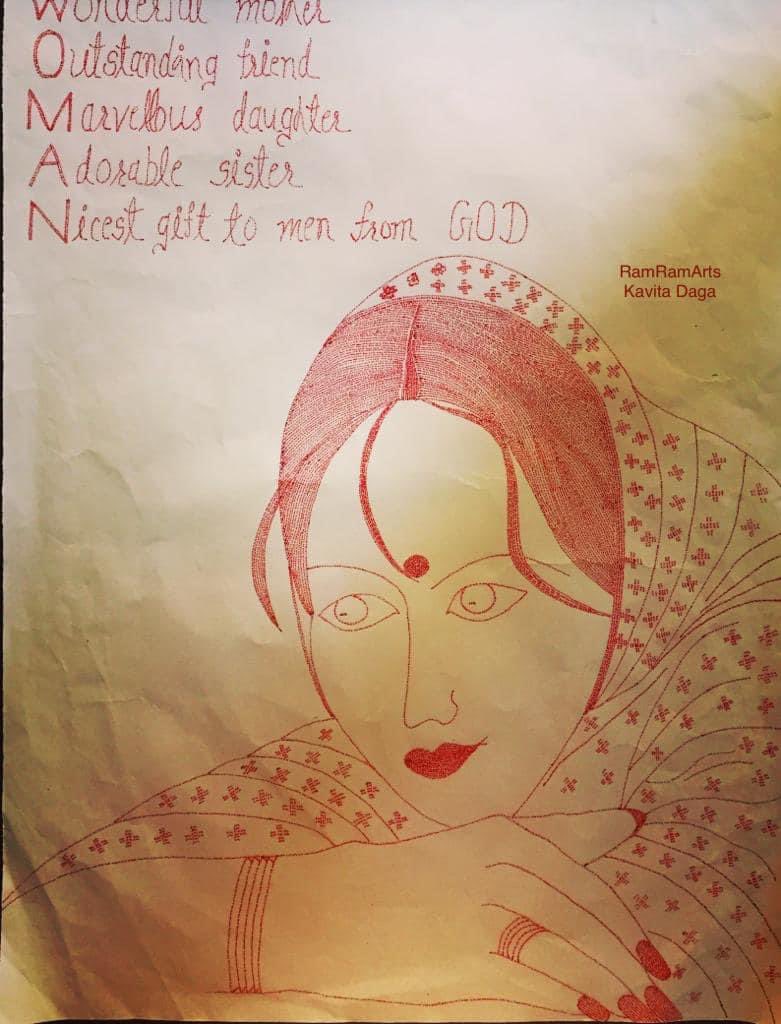 Wonderful mother
Outstanding friend
Marvellous daughter
Adorable sister
Nicest gift to men from GOD
RamRamArts
Kavita Daga